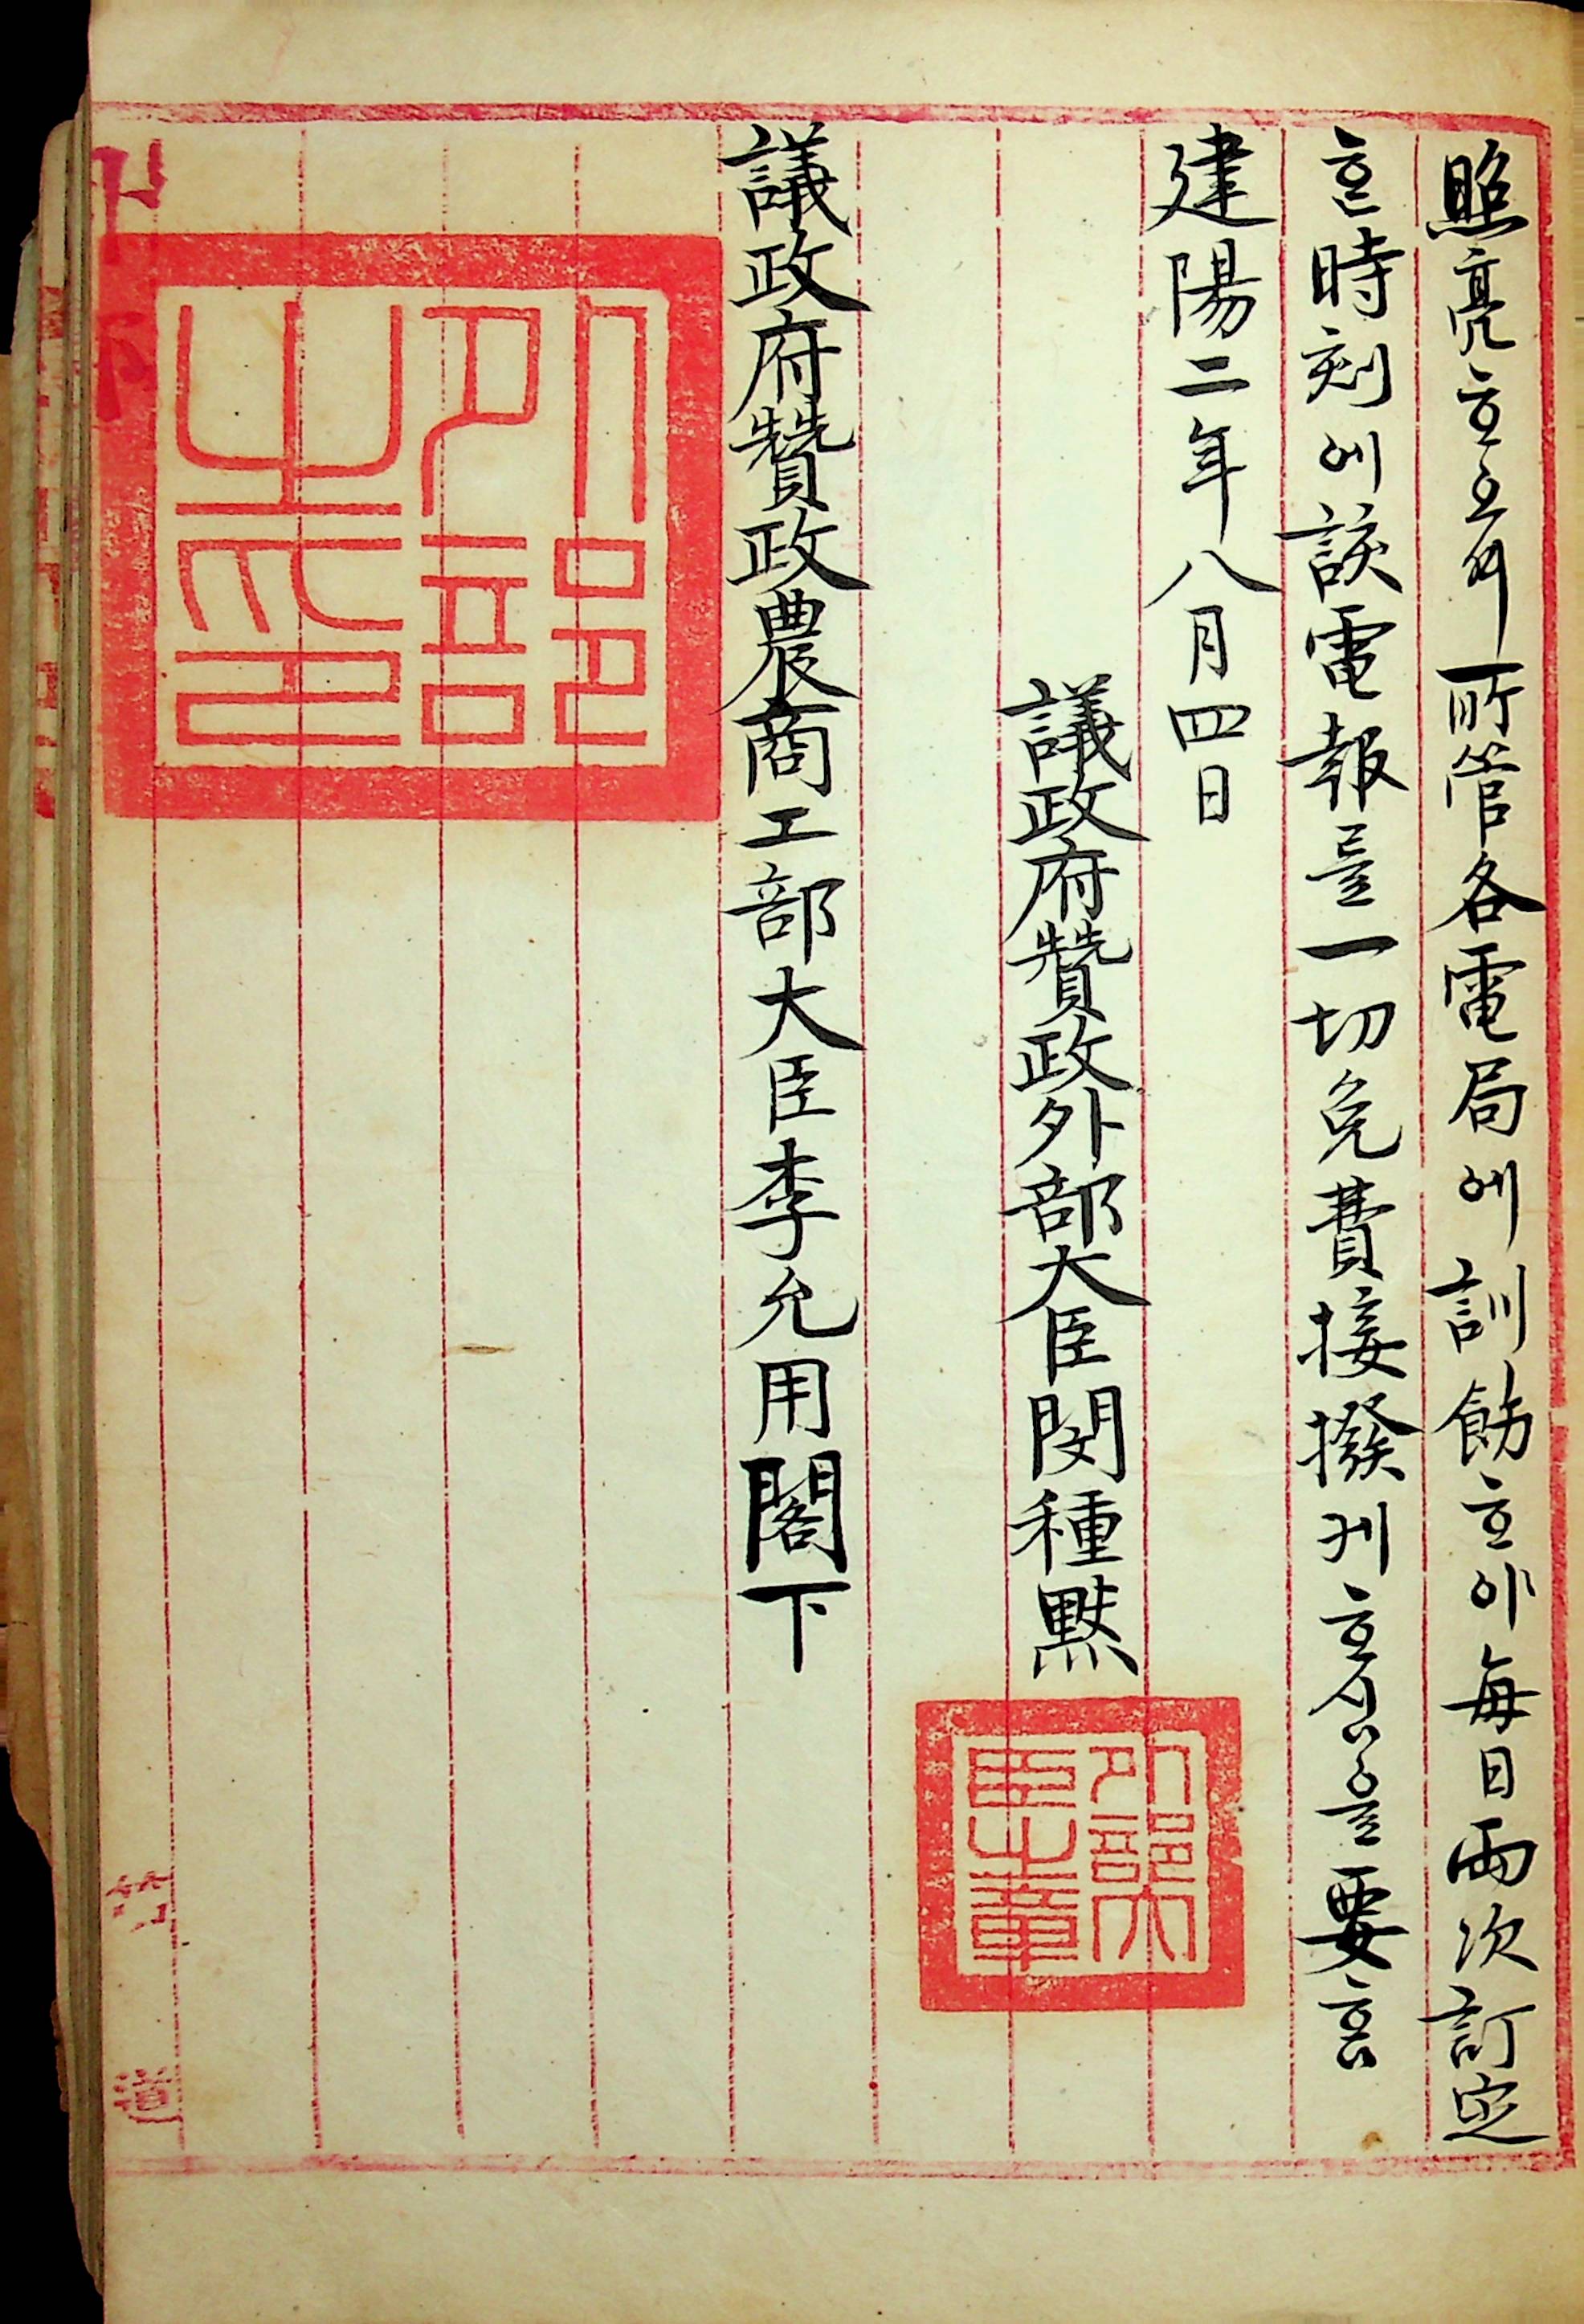 照亮ᄒᆞ오셔所管各電局에訓飭ᄒᆞ야每日兩次訂定
ᄒᆞᆫ時刻에該電報를一切免費接撥케ᄒᆞ심을要ᄒᆞᆷ
建陽二年八月四日
議政府贊政外部大臣閔種黙
外部大臣之章
議政府贊政農商工部大臣李允用閣下
外部之印